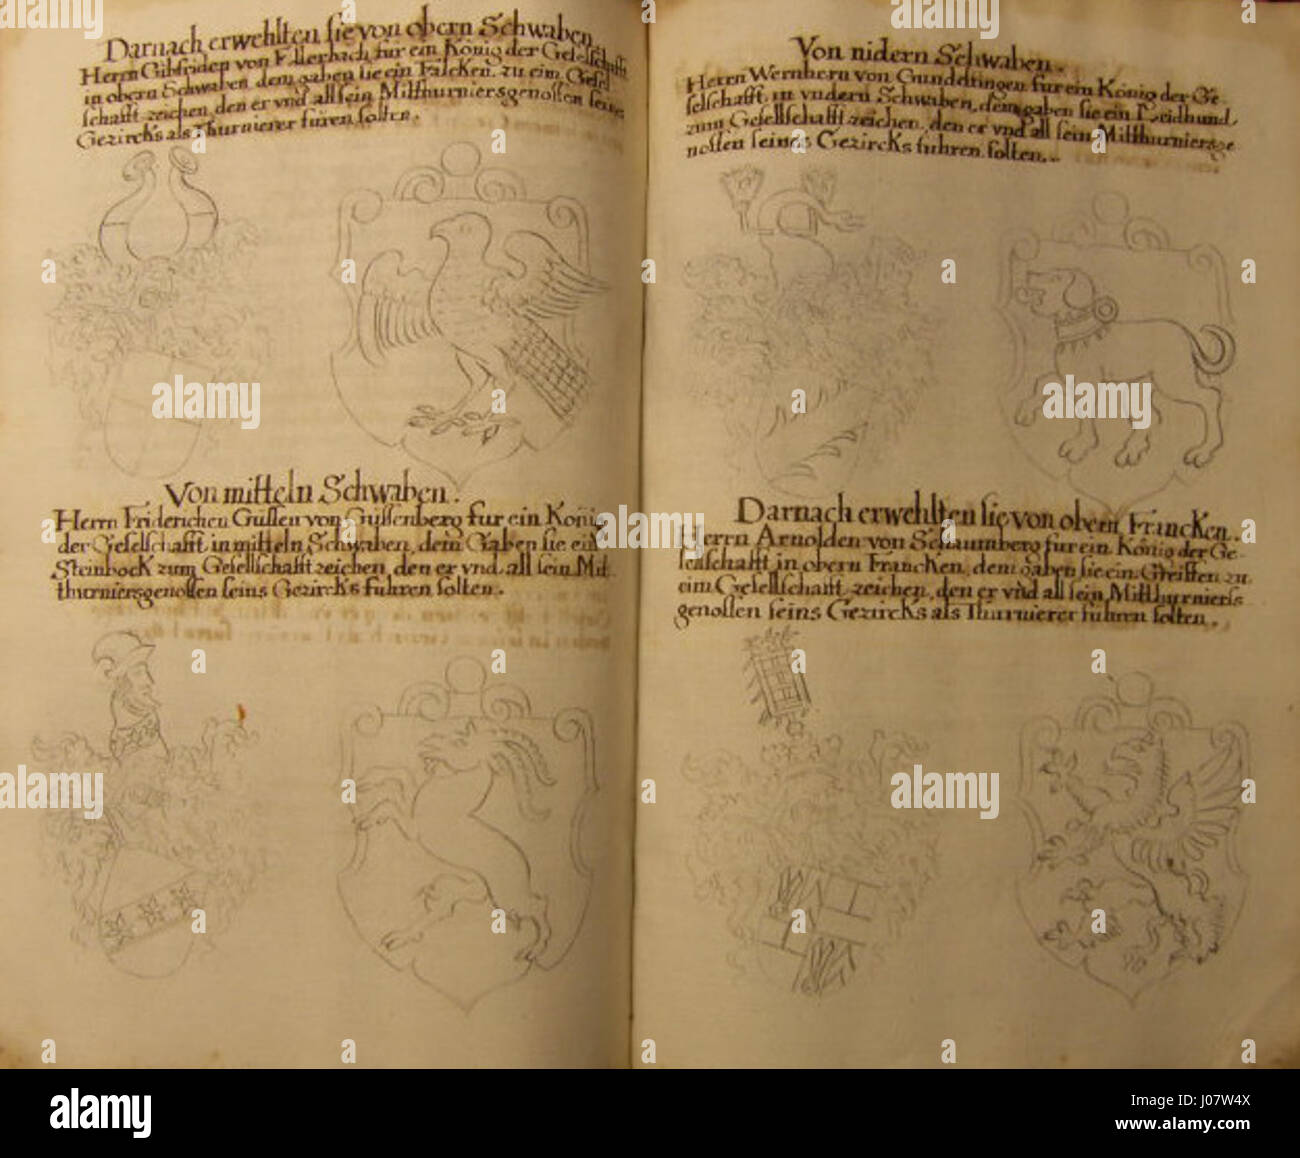 Darnach erwehlten sie von obern Schwaben
Herrn von Ellerbach für ein König der Gesellschafft
in obern Schwaben dem gaben sie ein Falcken, zu eim Gesel
schafft zeichen, den er vnd all sein Mitthurniersgenossen seines
Gezircks als Thurnierer füren solten.
Von mitteln Schwaben.
Herrn Friderichen Güssen von Güssenberg für ein König
der Gesellschafft in mitteln Schwaben, dem Gaben sie ein
Steinbock zum Gesellschafft zeichen, den er vnd all sein Mit
thurniersgenossen seins Gezircks fuhren solten.
Von nidern Schwaben.
Herrn Wernhern von Gundeltingen für ein König der Ge
selschafft in vndern Schwaben, dem gaben sie ein Leidhund,
zum Gesellschafft zeichen, den er vnd all sein Mitthurniersge
nossen seines Gezircks fuhren solten.
Darnach erwehlten sie von obern Francken.
Herrn Arnolden von Schaumberg für ein König der Ge-
selschafft in obern Francken, dem gaben sie ein Greiffen zu
eim Gesellschafft zeichen, den er vnd all sein Mitthurniers
genossen seins Gezircks als Thurnierer führen solten.
alamy
alamy
alamy
alamy
alamy
alamy stock photo
J07W4X
www.alamy.com